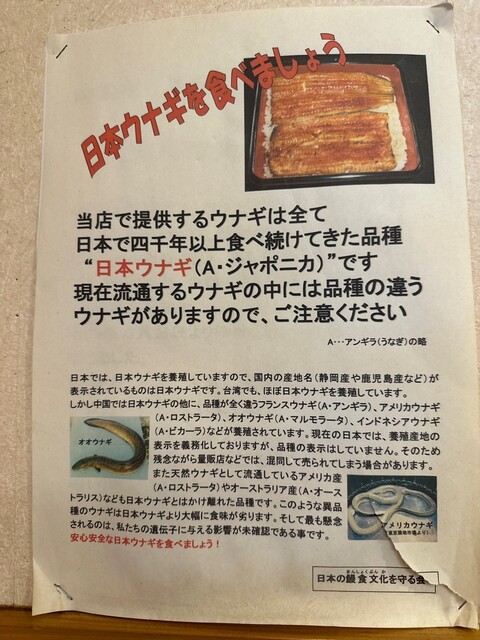 日本ウナギを食べましょう
当店で提供するウナギは全て
日本で四千年以上食べ続けてきた品種
“日本ウナギ（A・ジャポニカ）”です
現在流通するウナギの中には品種の違う
ウナギがありますので、ご注意ください
A・・・アンギラ（うなぎ）の略
日本では、日本ウナギを養殖していますので、国内の産地名（静岡産や鹿児島産など）が
表示されているものは日本ウナギです。台湾でも、ほぼ日本ウナギを養殖しています。
しかし中国では日本ウナギの他に、品種が全く違うフランスウナギ（A・アンギラ）、アメリカウナギ
（A・ロストラータ）、オオウナギ（A・マルモラータ）、インドネシアウナギ
（A・ビカーラ）などが養殖されています。現在の日本では、養殖産地の
表示を義務化しておりますが、品種の表示はしていません。そのため
残念ながら量販店などでは、混同して売られてしまう場合があります。
また天然ウナギとして流通しているアメリカ産
（A・ロストラータ）やオーストラリア産（A・オース
トラリス）なども日本ウナギとはかけ離れた品種です。このような異品
種のウナギは日本ウナギより大幅に食味が劣ります。そして最も懸念
されるのは、私たちの遺伝子に与える影響が未確認である事です。
安心安全な日本ウナギを食べましょう！
オオウナギ
アメリカウナギ
まんしょくぶんか
日本の鰻食文化を守る会